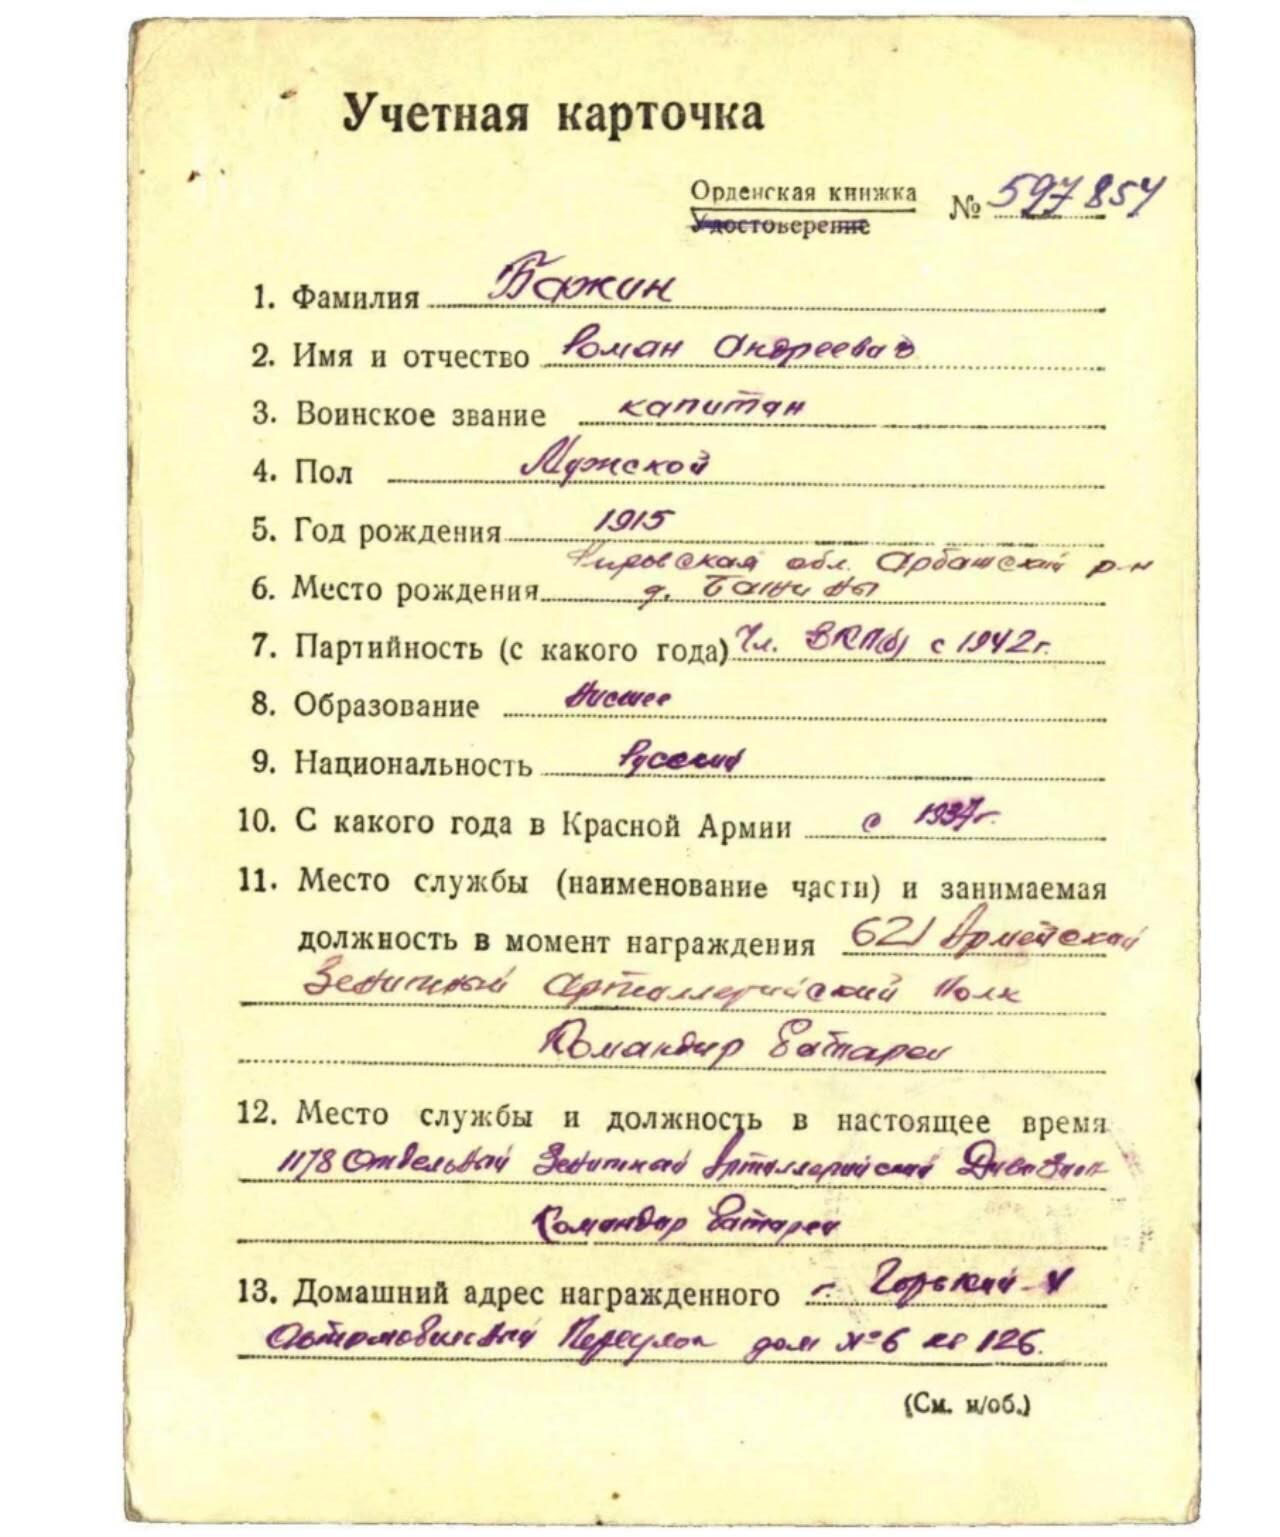 Учетная карточка
Орденская книжка № 597854
Удостоверение
1. Фамилия Бажин
2. Имя и отчество Роман Андреевич
3. Воинское звание капитан
4. Пол Мужской
5. Год рождения 1915
Кировская обл. Арбашский р-н
6. Место рождения д. Бажины
7. Партийность (с какого года) Чл. ВКП(б) с 1942 г.
8. Образование Высшее
9. Национальность Русский
10. С какого года в Красной Армии с 1937 г.
11. Место службы (наименование части) и занимаемая
должность в момент награждения 621 Армейский
Зенитный Артиллерийский Полк
Командир Батареи
12. Место службы и должность в настоящее время
1178 Отдельный Зенитный Артиллерийский Дивизион
Командир Батареи
13. Домашний адрес награжденного г. Горький
Автомобильный Переулок дом № 6 кв 126.
(См. н/об.)